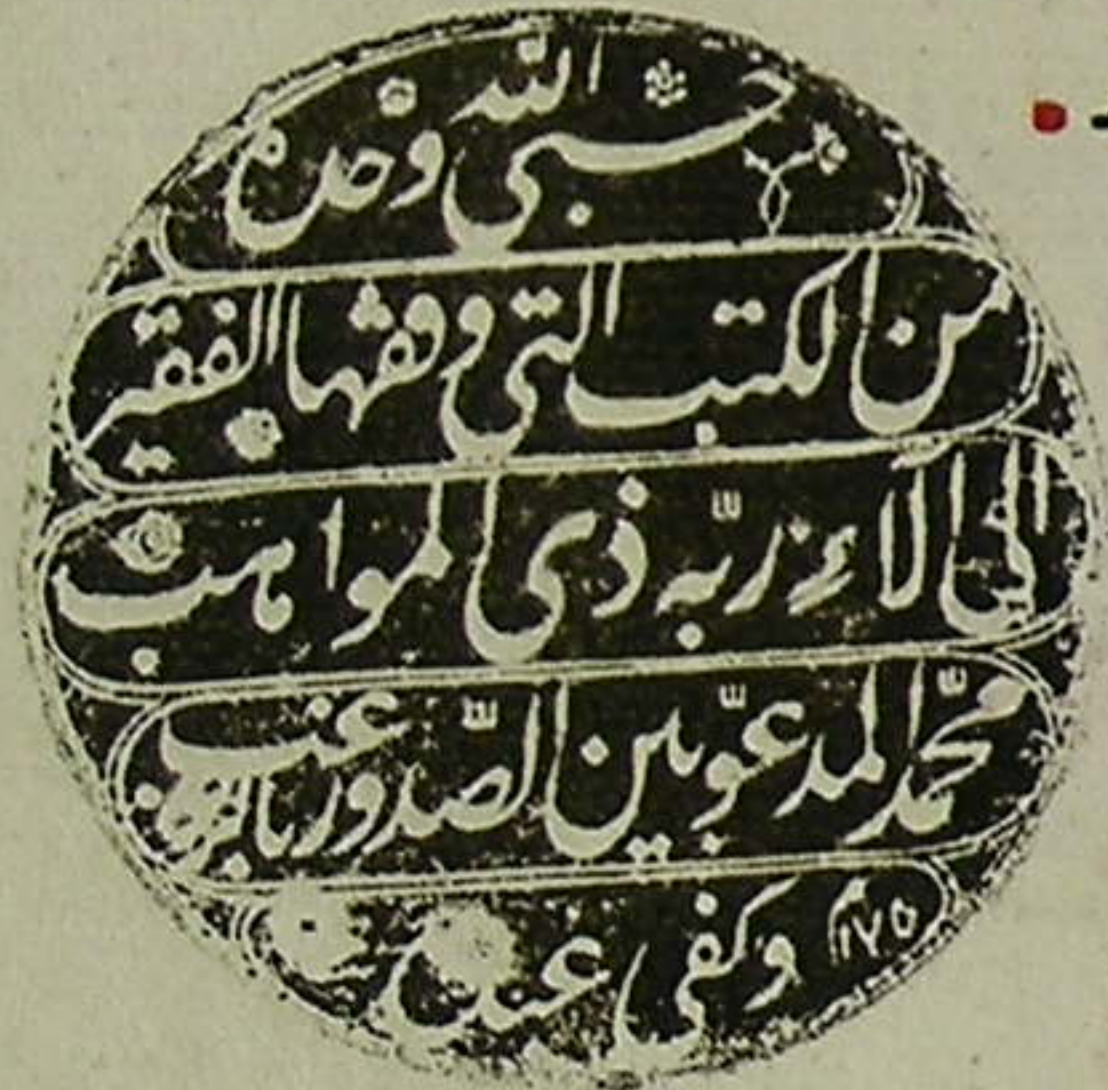 حسبي الله وحده
من الكتب التي وقفها الفقير
الى آلاء ربّه ذي المواهب
محمّد المدعوّ بين الصّدور بالراغب
١١٧٥ وكفى عبده